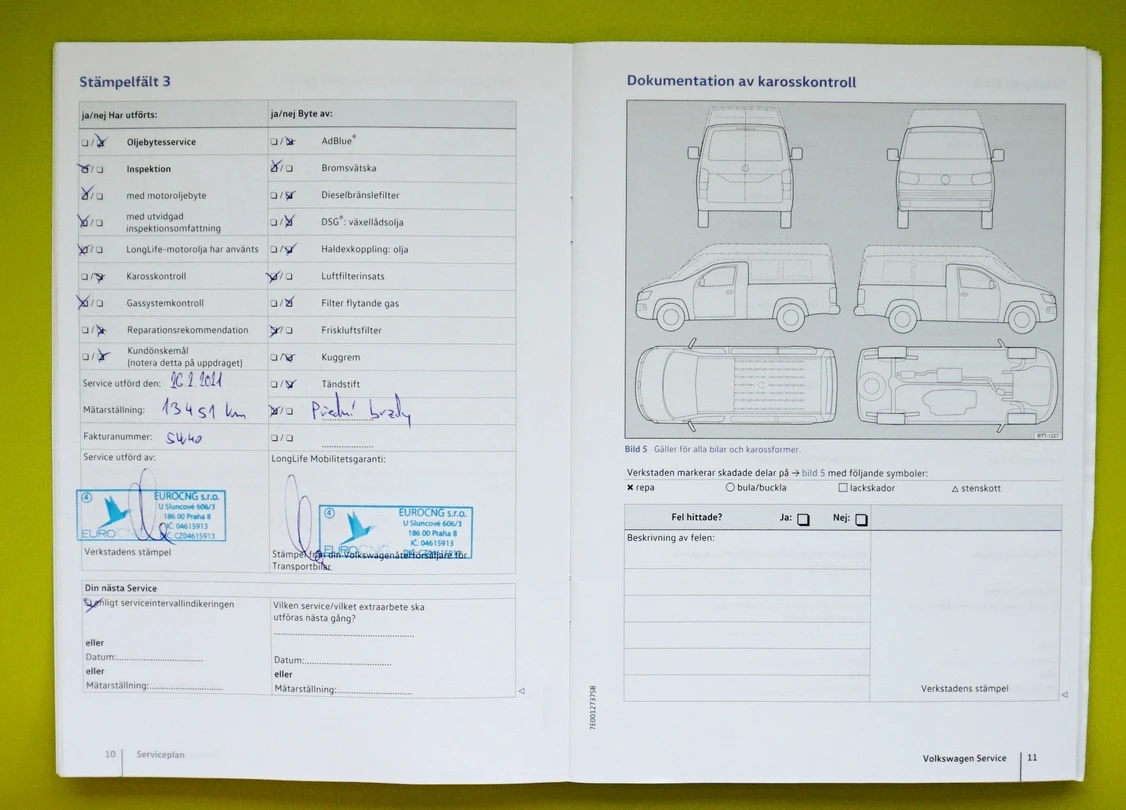 Stämpelfält 3
ja/nej Har utförts:
ja/nej Byte av:
Oljebytesservice
AdBlue®
Inspektion
Bromsvätska
med motoroljebyte
Dieselbränslefilter
med utvidgad
inspektionsomfattning
DSG®: växellådsolja
LongLife-motorolja har använts
Haldexkoppling: olja
Karosskontroll
Luftfilterinsats
Gassystemkontroll
Filter flytande gas
Reparationsrekommendation
Friskluftsfilter
Kundönskemål
(notera detta på uppdraget)
Kuggrem
Service utförd den:
Tändstift
Mätarställning: 13451 km
Přední brzdy
Fakturanummer: 5440
Service utförd av:
LongLife Mobilitetsgaranti:
④ EUROCNG s.r.o.
U Sluncové 606/3
186 00 Praha 8
IČ: 04615913
EUROCNG
CZ04615913
Verkstadens stämpel
④ EUROCNG s.r.o.
U Sluncové 606/3
186 00 Praha 8
IČ: 04615913
EUROCNG DIČ: CZ04615913
Stämpel från din Volkswagenåterförsäljare för
Transportbilar
Din nästa Service
enligt serviceintervallindikeringen
eller
Datum:
eller
Mätarställning:
Vilken service/vilket extraarbete ska
utföras nästa gång?
Datum:
eller
Mätarställning:
10 Serviceplan
Dokumentation av karosskontroll
BTT-1227
Bild 5 Gäller för alla bilar och karossformer.
Verkstaden markerar skadade delar på → bild 5 med följande symboler:
✖ repa ○ bula/buckla □ lackskador △ stenskott
Fel hittade? Ja: Nej:
Beskrivning av felen:
Verkstadens stämpel
7E0012737SB
Volkswagen Service 11